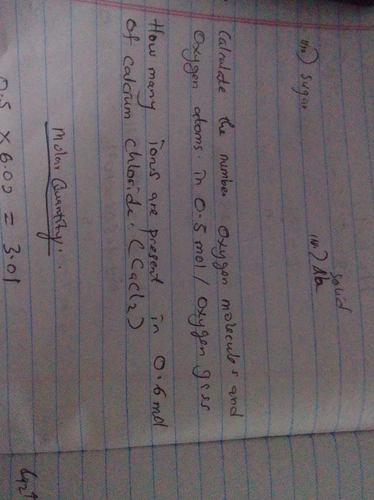 solid
iii) Sugar
Calculate the number oxygen molecules and
oxygen atoms. in 0.5 mol / oxygen gass
How many ions are present in 0.6 mol
of calcium chloride. (CaCl2)
Molar Quantity..
0.5 × 6.00 = 3.01